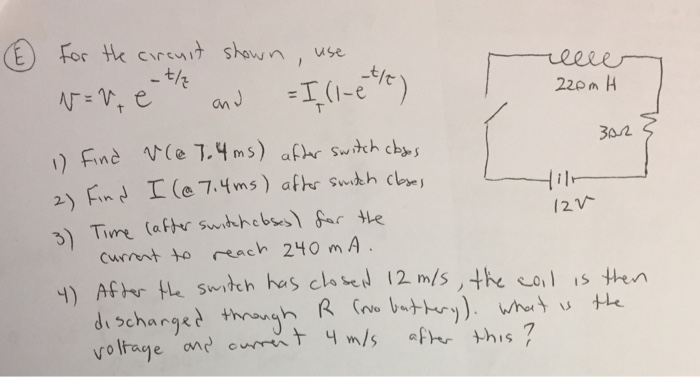 E For the circuit shown, use
V = V_T e^{-t/τ} and = I_T (1-e^{-t/τ})
220mH
30Ω
12V
1) Find V(@ 7.4ms) after switch closes
2) Find I (@ 7.4ms) after switch closes
3) Time (after switch closes) for the
current to reach 240 mA.
4) After the switch has closed 12 m/s, the coil is then
discharged through R (no battery). What is the
voltage and current 4 m/s after this?